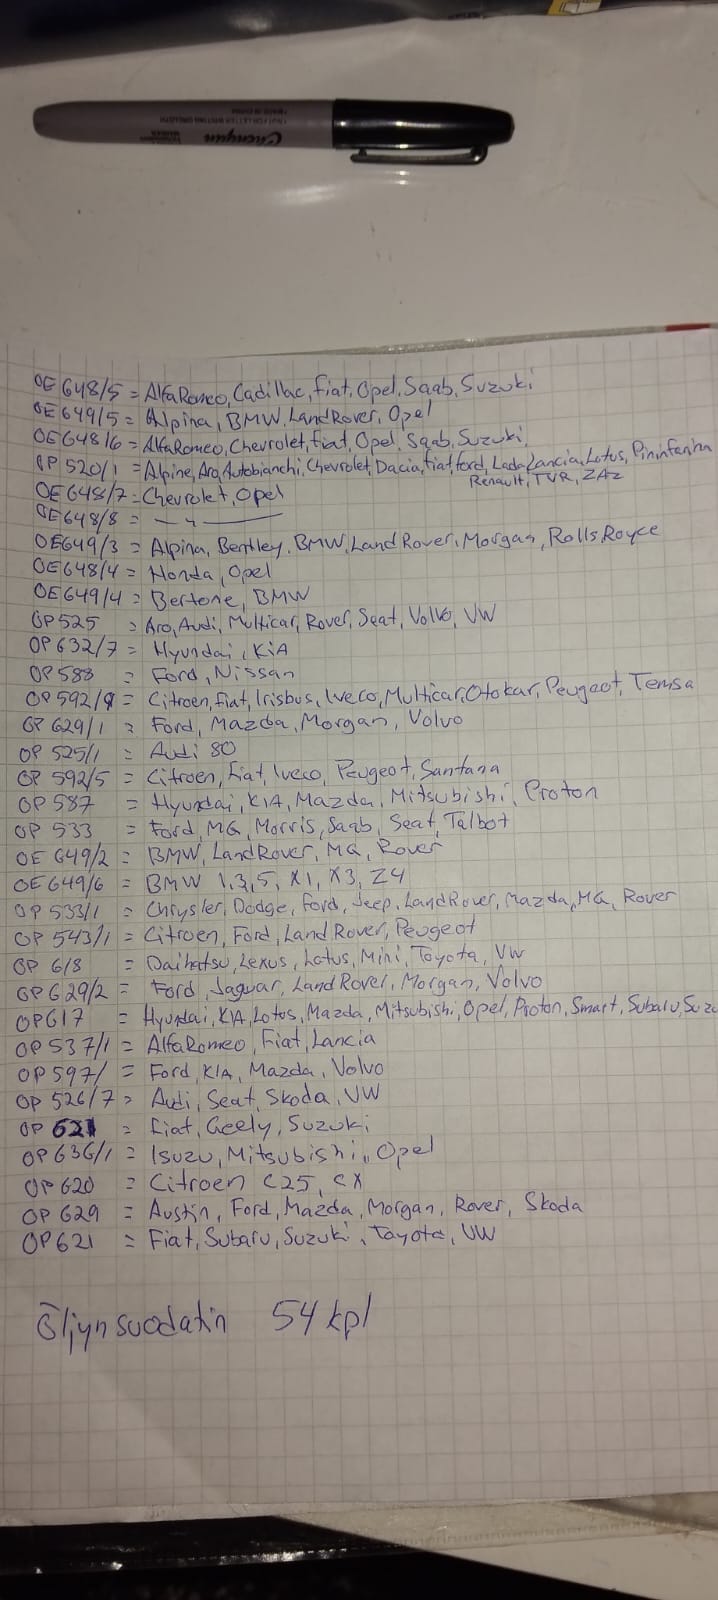 OE 648/5 = AlfaRomeo, Cadillac, fiat, Opel, Saab, Suzuki
OE 649/5 = Alpina, BMW, LandRover, Opel
OE 648/6 = AlfaRomeo, Chevrolet, fiat, Opel, Saab, Suzuki,
OP 520/1 = Alpine, Aro, Autobianchi, Chevrolet, Dacia, fiat, ford, Lada, Lancia, Lotus, Pininfarina
Renault, TVR, ZAZ
OE 648/7 = Chevrolet, Opel
OE 648/8 = — " —
OE 649/3 = Alpina, Bentley, BMW, Land Rover, Morgan, Rolls Royce
OE 648/4 = Honda, Opel
OE 649/4 = Bertone, BMW
OP 525 = Aro, Audi, Multicar, Rover, Seat, Volvo, VW
OP 632/7 = Hyundai, KiA
OP 588 = Ford, Nissan
OP 592/8 = Citroen, fiat, Irisbus, Iveco, Multicar, Otokar, Peugeot, Temsa
OP 629/1 = Ford, Mazda, Morgan, Volvo
OP 525/1 = Audi 80
OP 592/5 = Citroen, Fiat, Iveco, Peugeot, Santana
OP 587 = Hyundai, KIA, Mazda, Mitsubishi, Proton
OP 533 = Ford, MG, Morris, Saab, Seat, Talbot
OE 649/2 = BMW, LandRover, MG, Rover
OE 649/6 = BMW 1,3,5, X1, X3, Z4
OP 533/1 = Chrysler, Dodge, Ford, Jeep, LandRover, Mazda, MG, Rover
OP 543/1 = Citroen, Ford, Land Rover, Peugeot
OP 618 = Daihatsu, Lexus, Lotus, Mini, Toyota, VW
OP 629/2 = Ford, Jaguar, Land Rover, Morgan, Volvo
OP 617 = Hyundai, KIA, Lotus, Mazda, Mitsubishi, Opel, Proton, Smart, Subaru, Suzu
OP 537/1 = AlfaRomeo, Fiat, Lancia
OP 597/ = Ford, KIA, Mazda, Volvo
OP 526/7 = Audi, Seat, Skoda, VW
OP 621 = Fiat, Geely, Suzuki
OP 636/1 = Isuzu, Mitsubishi, Opel
OP 620 = Citroen C25, CX
OP 629 = Austin, Ford, Mazda, Morgan, Rover, Skoda
OP 621 = Fiat, Subaru, Suzuki, Toyota, VW
Öljynsuodatin 54 kpl